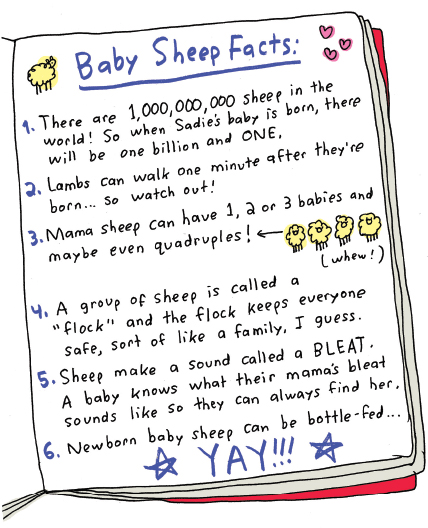 Baby Sheep Facts:
1. There are 1,000,000,000 sheep in the
world! So when Sadie's baby is born, there
will be one billion and ONE.
2. Lambs can walk one minute after they're
born... so watch out!
3. Mama sheep can have 1, 2 or 3 babies and
maybe even quadruples! ←
(whew!)
4. A group of sheep is called a
"flock" and the flock keeps everyone
safe, sort of like a family, I guess.
5. Sheep make a sound called a BLEAT.
A baby knows what their mama's bleat
sounds like so they can always find her.
6. Newborn baby sheep can be bottle-fed...
YAY!!!